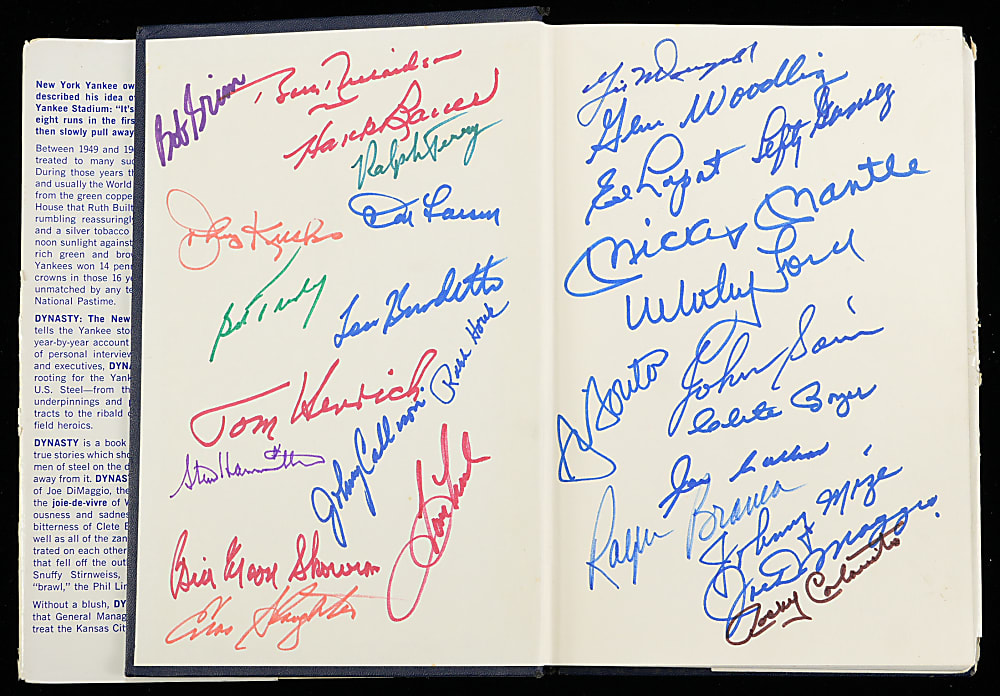 New York Yankee ow
described his idea o
Yankee Stadium: "It's
eight runs in the firs
then slowly pull away
Between 1949 and 19
treated to many suc
During those years th
and usually the World
from the green coppe
House that Ruth Built
rumbling reassuringl
and a silver tobacco
noon sunlight against
rich green and bro
Yankees won 14 penn
crowns in those 16 ye
unmatched by any te
National Pastime.
DYNASTY: The New
tells the Yankee sto
year-by-year account
of personal interview
and executives, DYNA
rooting for the Yank
U.S. Steel—from th
underpinnings and p
tracts to the ribald c
field heroics.
DYNASTY is a book
true stories which sho
men of steel on the d
away from it. DYNAS
of Joe DiMaggio, the
the joie-de-vivre of W
ousness and sadnes
bitterness of Clete B
well as all of the zan
trated on each other
that fell off the out
Snuffy Stirnweiss,
"brawl," the Phil Lin
Without a blush, DY
that General Manag
treat the Kansas Cit
Bob Grim
Bobby Richardson
Hank Bauer
Ralph Terry
Don Larsen
Johnny Kucks
Bob Turley
Lou Burdette
Ralph Houk
Tom Henrich
Steve Hamilton
Johnny Callison
Bill "Moon" Skowron
Enos Slaughter
Gil McDougald
Gene Woodling
Ed Lopat
Lefty Gomez
Mickey Mantle
Whitey Ford
J Bouton
John Sain
Clete Boyer
Ralph Branca
Johnny Mize
Joe DiMaggio
Rocky Colavito